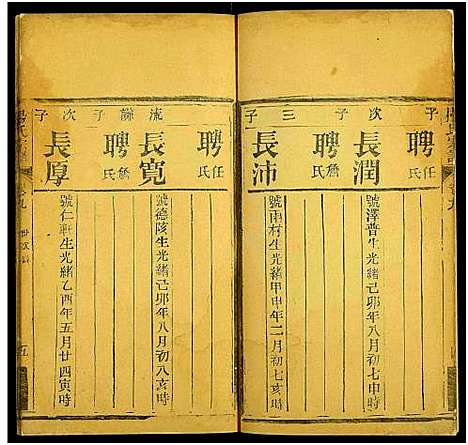 子次子三
長潤
號澤普生光緒己卯年八月初七申時
聘任氏
長沛
號雨村生光緒甲申年二月初七亥時
聘詹氏
子次子謝流
長寬
號德陔生光緒己卯年八月初八亥時
聘任氏
長厚
號仁軒生光緒乙酉年五月廿四寅時
聘詹氏
五